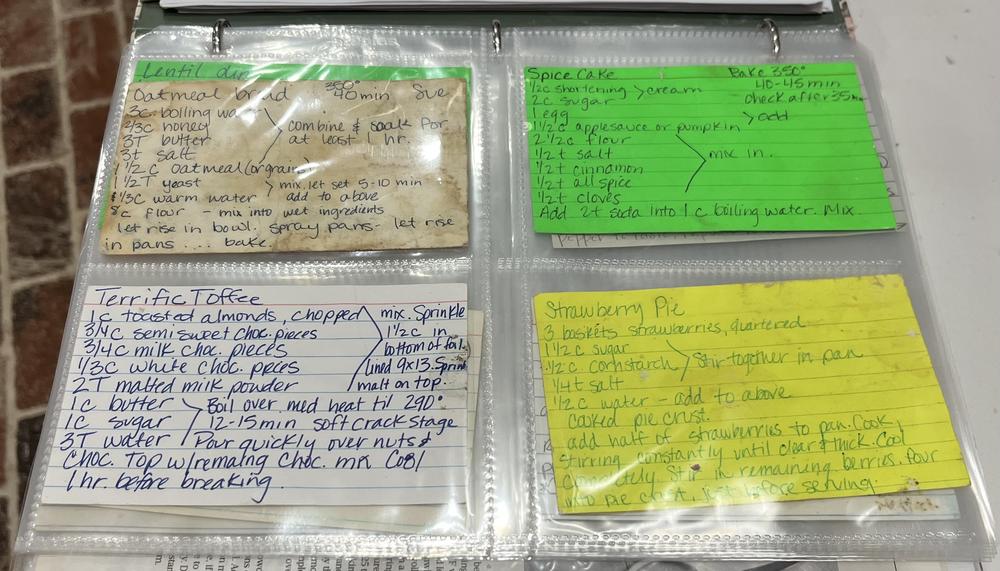 Lentil
Oatmeal bread 350° 40 min Sue
3c boiling wa
2/3c honey
3T butter
3t salt
combine & soak for
at least 1 hr.
1 1/2c oatmeal (or grains)
1 1/2T yeast
1/3c warm water
mix, let set 5-10 min
add to above
8c flour - mix into wet ingredients
let rise in bowl. spray pans - let rise
in pans .... bake.
Spice Cake
Bake 350°
40-45 min
check after 35 min
1/2c shortening
2c sugar
cream
1 egg
1 1/2c applesauce or pumpkin
add
2 1/2c flour
1/2t salt
1/2t cinnamon
1/2t allspice
1/2t cloves
mix in.
Add 2t soda into 1c boiling water. Mix.
Terrific Toffee
1c toasted almonds, chopped
3/4c semisweet choc. pieces
3/4c milk choc. pieces
1/3c white choc. pieces
2T malted milk powder
mix. Sprinkle
1 1/2c in
bottom of foil
lined 9x13. Sprink
malt on top.
1c butter
1c sugar
3T water
Boil over med heat til 290°
12-15min soft crack stage
Pour quickly over nuts &
choc. Top w/remaing choc. mix Cool
1 hr. before breaking.
Strawberry Pie
3 baskets strawberries, quartered
1 1/2c sugar
1/2c cornstarch
1/4t salt
Stir together in pan
1/2c water - add to above
cooked pie crust.
add half of strawberries to pan. Cook,
stirring constantly until clear & thick. Cool
completely. Stir in remaining berries. Pour
into pie crust, just before serving.